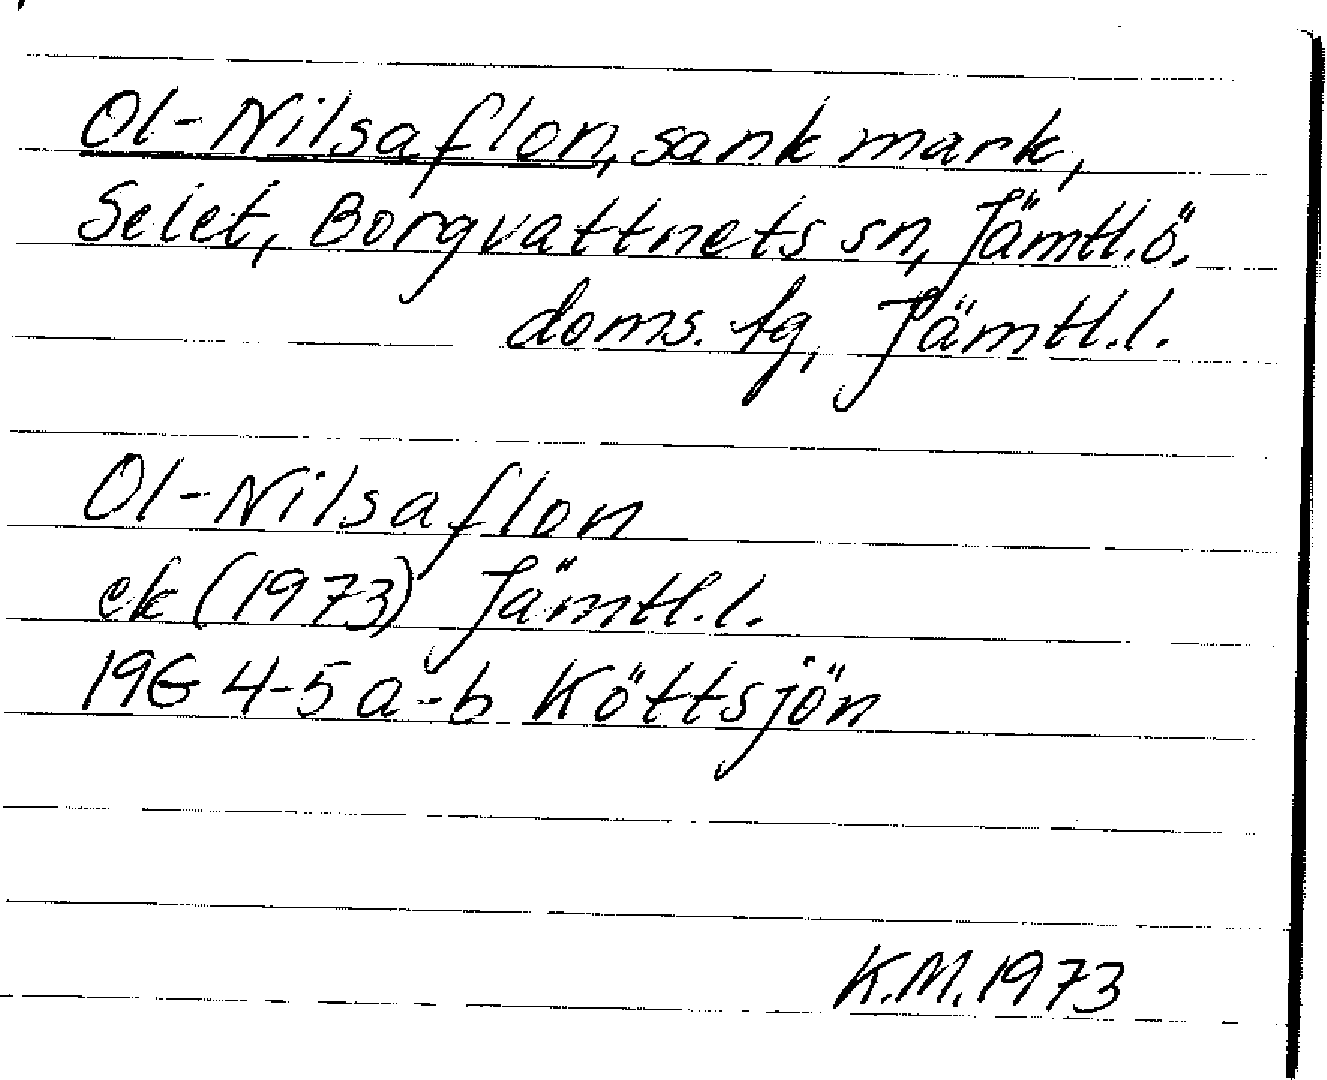 Ol-Nilsaflon, sank mark,
Selet, Borgvattnets sn, Jämtl.ö.
doms. tg, Jämtl.l.
Ol-Nilsaflon
ek (1973) Jämtl.l.
19G 4-5 a-b Köttsjön
K.M. 1973